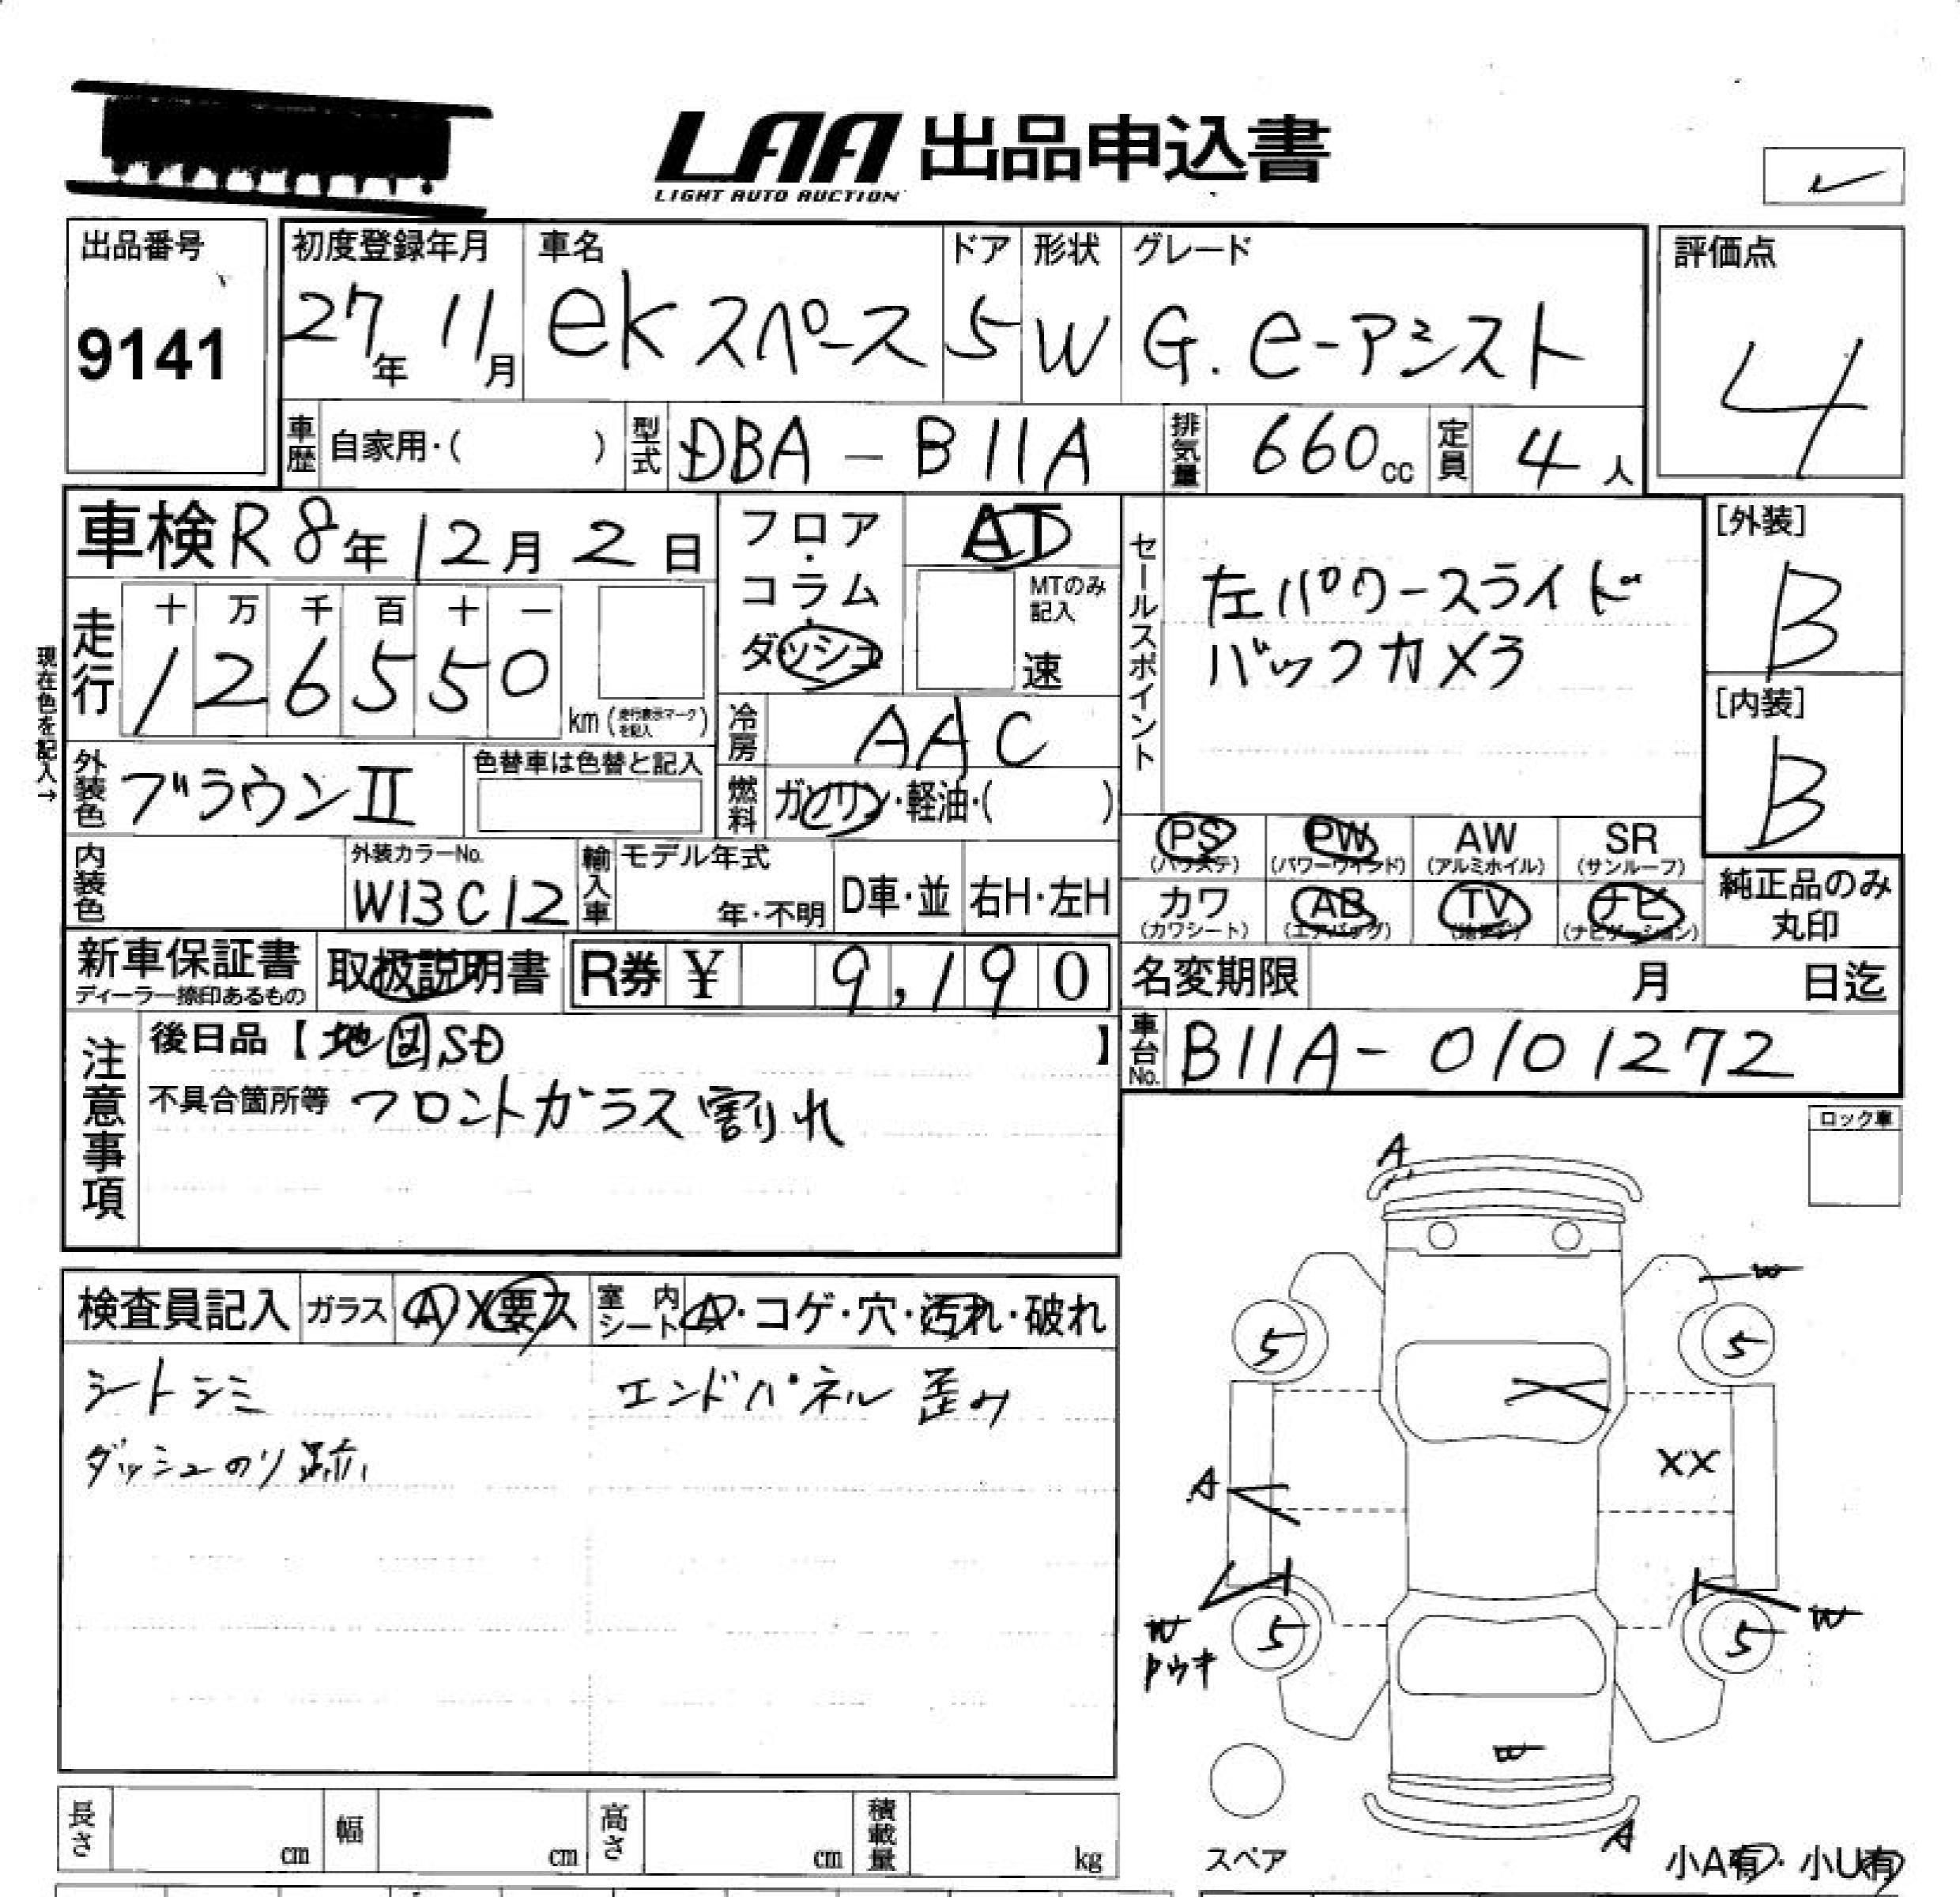 LAA 出品申込書
LIGHT AUTO AUCTION
出品番号
9141
初度登録年月
27年 11月
車名
eKスペース
ドア
5
形状
W
グレード
G. e-アシスト
評価点
4
車歴 自家用・( )
型式 DBA-B11A
排気量 660cc
定員 4人
車検 R8年12月2日
フロア・コラム・ダッシュ
AT
MTのみ記入
速
セールスポイント
左パワースライド
バックカメラ
[外装]
B
[内装]
B
現在色を記入→
走行
十 万 千 百 十 一
1 2 6 5 5 0
km (走行表示マークを記入)
冷房 AAC
外装色 ブラウンII
色替車は色替と記入
燃料 ガソリン・軽油・( )
PS (パワステ)
PW (パワーウインド)
AW (アルミホイル)
SR (サンルーフ)
カワ (カワシート)
AB (エアバッグ)
TV (地デジ)
ナビ (ナビゲーション)
純正品のみ丸印
内装色
外装カラーNo.
W13C12
輸入車
モデル年式
年・不明
D車・並
右H・左H
新車保証書
ディーラー捺印あるもの
取扱説明書
R券 ¥ 9,190
名変期限 月 日迄
注意事項
後日品【地図SD】
不具合箇所等 フロントガラス割れ
車台No. B11A-0101272
ロック車
検査員記入
ガラス A X 要 ス
室内シート A・コゲ・穴・汚れ・破れ
シートシミ
ダッシュのり跡
エンドパネル歪み
A
W
5
5
X
XX
A
W
トウキ
5
5
W
W
A
スペア
小A有・小U有
長さ cm
幅 cm
高さ cm
積載量 kg